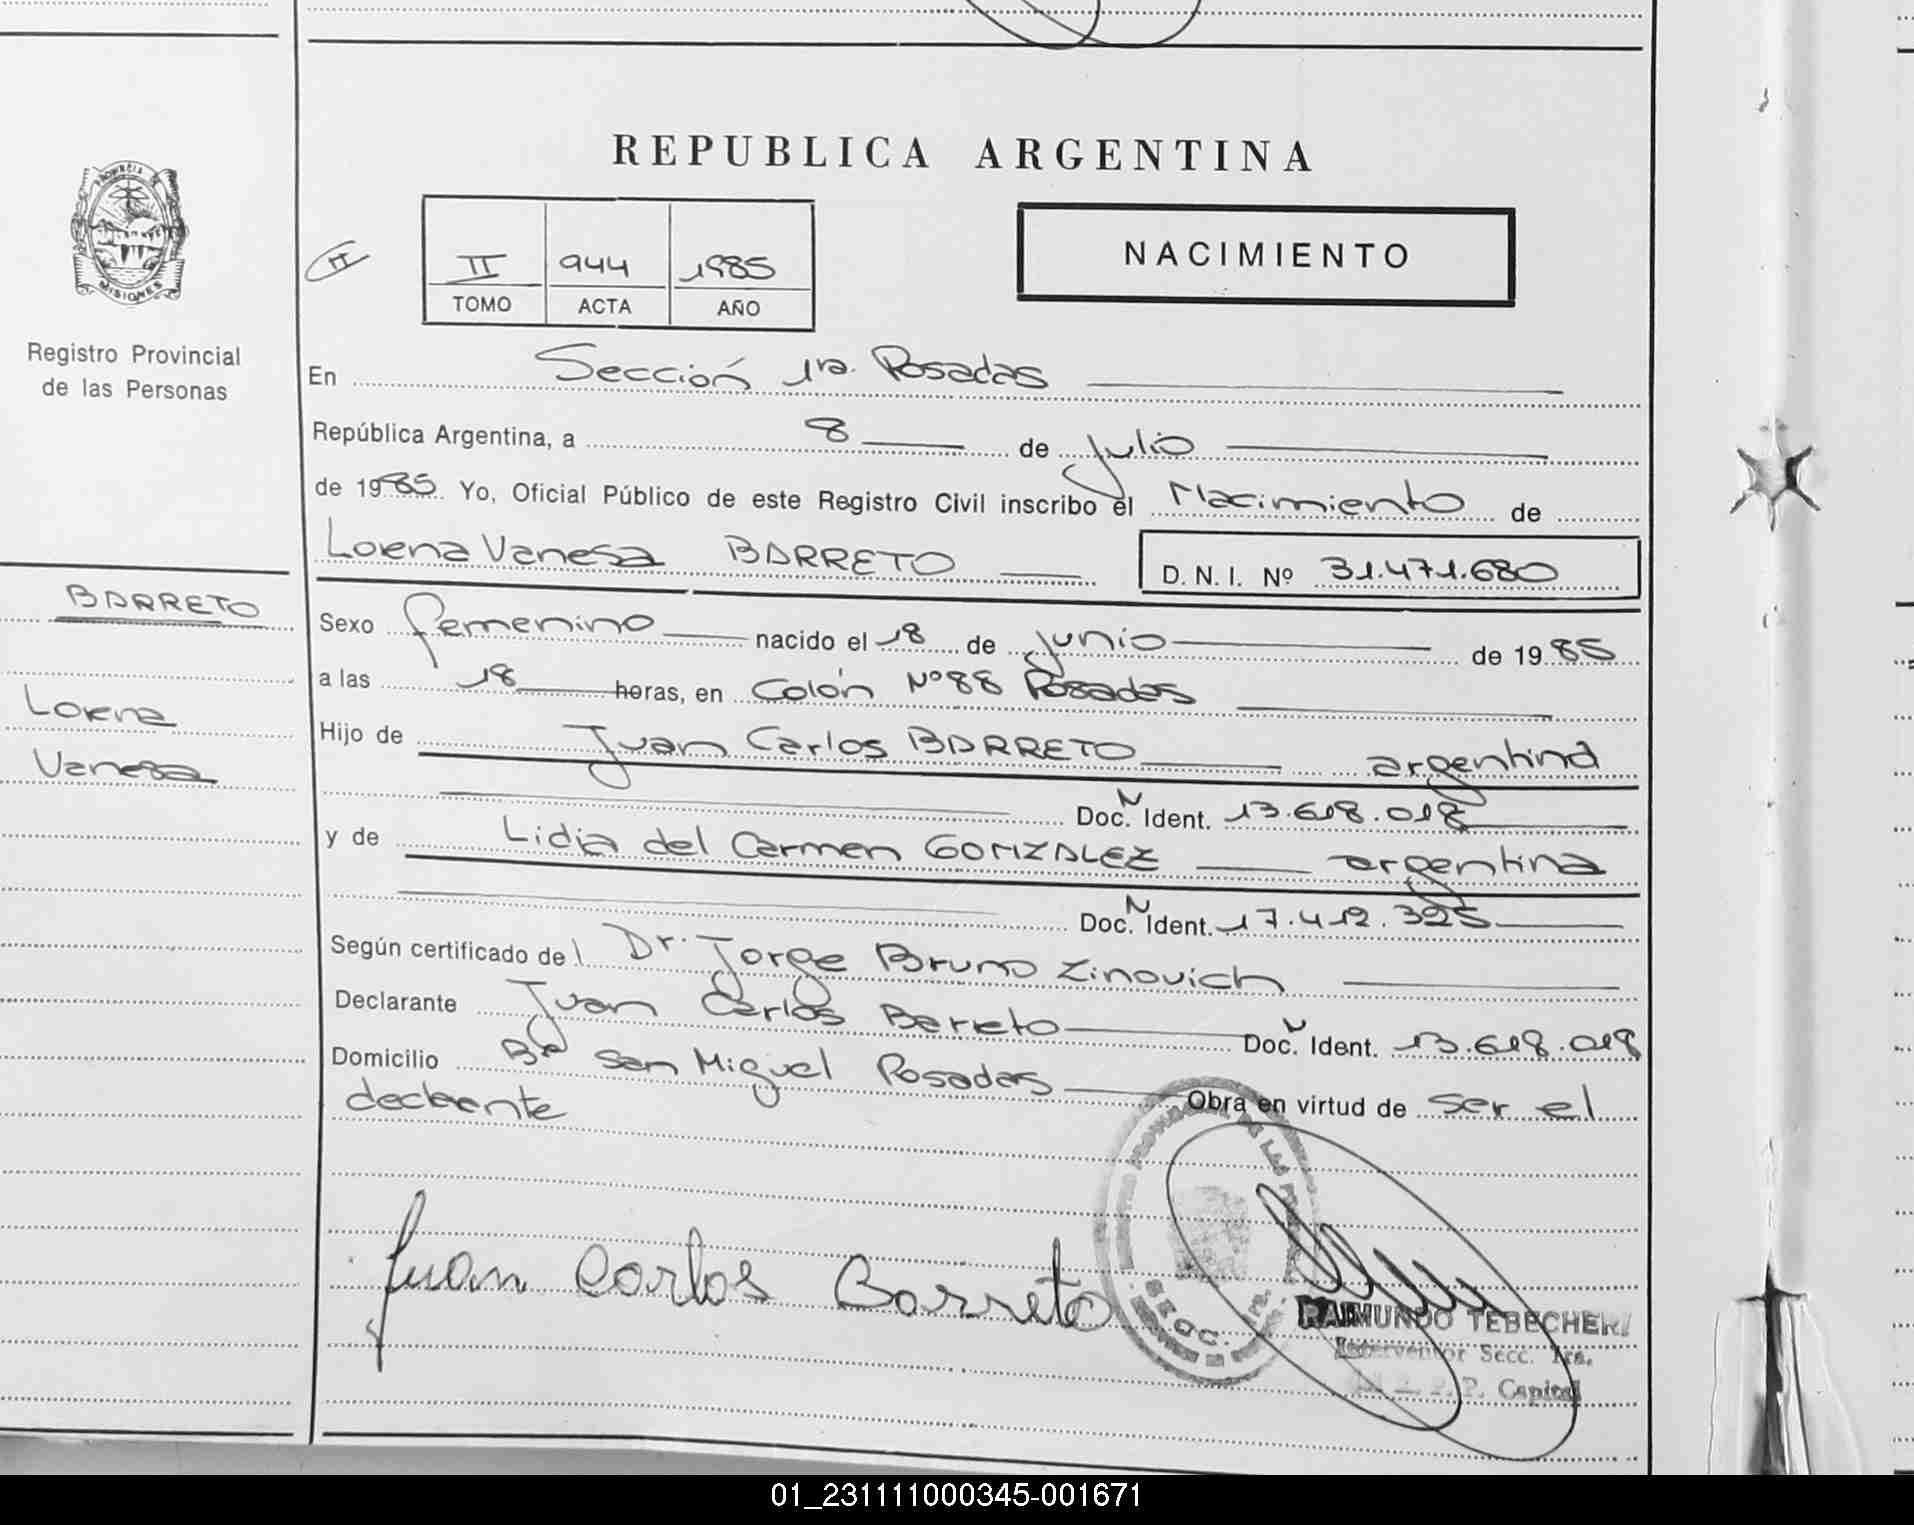 REPUBLICA ARGENTINA
PROVINCIA DE
MISIONES
Registro Provincial
de las Personas
II
II 944 1985
TOMO ACTA AÑO
NACIMIENTO
En Sección 1ra. Posadas
República Argentina, a 8 de Julio
de 1985. Yo, Oficial Público de este Registro Civil inscribo el Nacimiento de
Lorena Vanesa BARRETO D.N.I. Nº 31.471.680
BARRETO
Lorena
Vanesa
Sexo femenino nacido el 18 de junio de 1985
a las 18 horas, en Colón Nº 88 Posadas
Hijo de Juan Carlos BARRETO argentino
Doc. N Ident. 13.618.018
y de Lidia del Carmen GONZALEZ argentina
Doc. N Ident. 17.412.325
Según certificado del Dr. Jorge Bruno Zinovich
Declarante Juan Carlos Barreto Doc. Ident. 13.618.018
Domicilio Bº San Miguel Posadas Obra en virtud de ser el
declarante
Juan Carlos Barreto
RAIMUNDO TEBECHERI
Interventor Secc. 1ra.
R. P. P. Capital
01_231111000345-001671